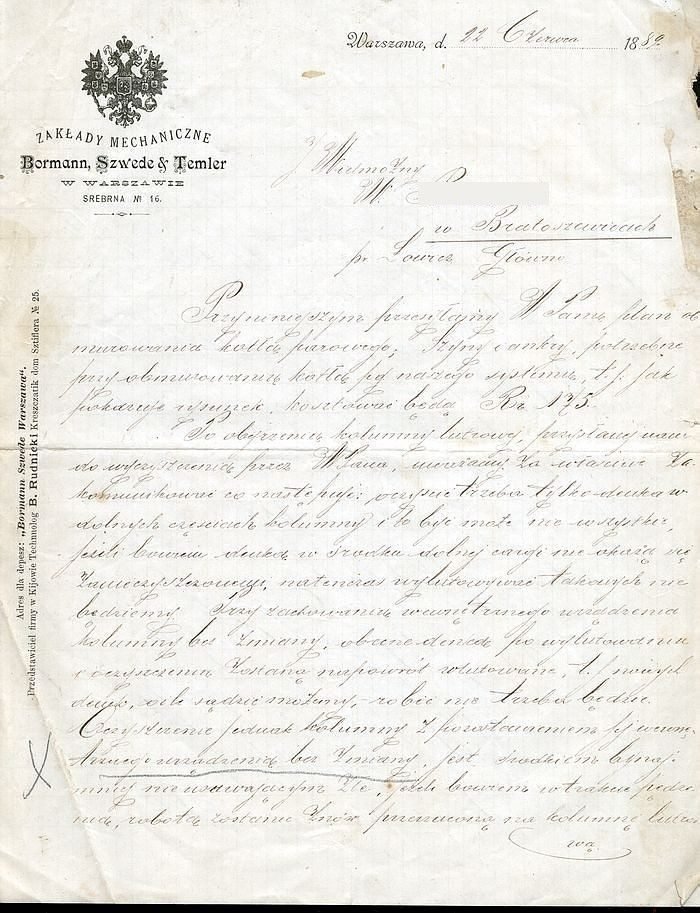 Warszawa, d. 22 Czerwca 1889
ZAKŁADY MECHANICZNE
Bormann, Szwede & Temler
W WARSZAWIE
SREBRNA № 16.
J. Wielmożny
W. P
w Bratoszewicach
pr Łowicz Główno
Przy niniejszym przesyłamy W Panu plan ob
murowania kotła parowego; Szyny i ankry, potrzebne
przy obmurowaniu kotła pg naszego systemu, t. j. jak
pokazuje rysunek, kosztować będą Rs 175.
Po obejrzeniu kolumny lutrowej, przysłanej nam
do wyczyszczenia przez WPana, uważamy za właściwe za
komunikować co następuje: oczyścić trzeba tylko denka w
dolnych częściach kolumny i to być może nie wszystkie,
jeżeli bowiem denka w środku dolnej części nie okażą się
zanieczyszczonemi, natenczas wylutowywać takowych nie
będziemy. Przy zachowaniu wewnętrznego urządzenia
kolumny bez zmiany, obecne denka po wylutowaniu
i oczyszczeniu zostaną napowrót wlutowane, t. j. nowych
denek, o ile sądzić możemy, robić nie trzeba będzie.
Oczyszczenie jednak kolumny z pozostawieniem jej wewnę-
trznego urządzenia bez zmiany, jest środkiem bynaj-
mniej nie usuwającym złe, jeżeli bowiem w trakcie pędze
nia, robota zostanie znów przerzuconą na kolumnę lutro
wą
Adres dla depesz: „Bormann Szwede Warszawa“.
Przedstawiciel firmy w Kijowie Technolog B. Rudnicki Kreszczatik dom Sztiflera № 25.